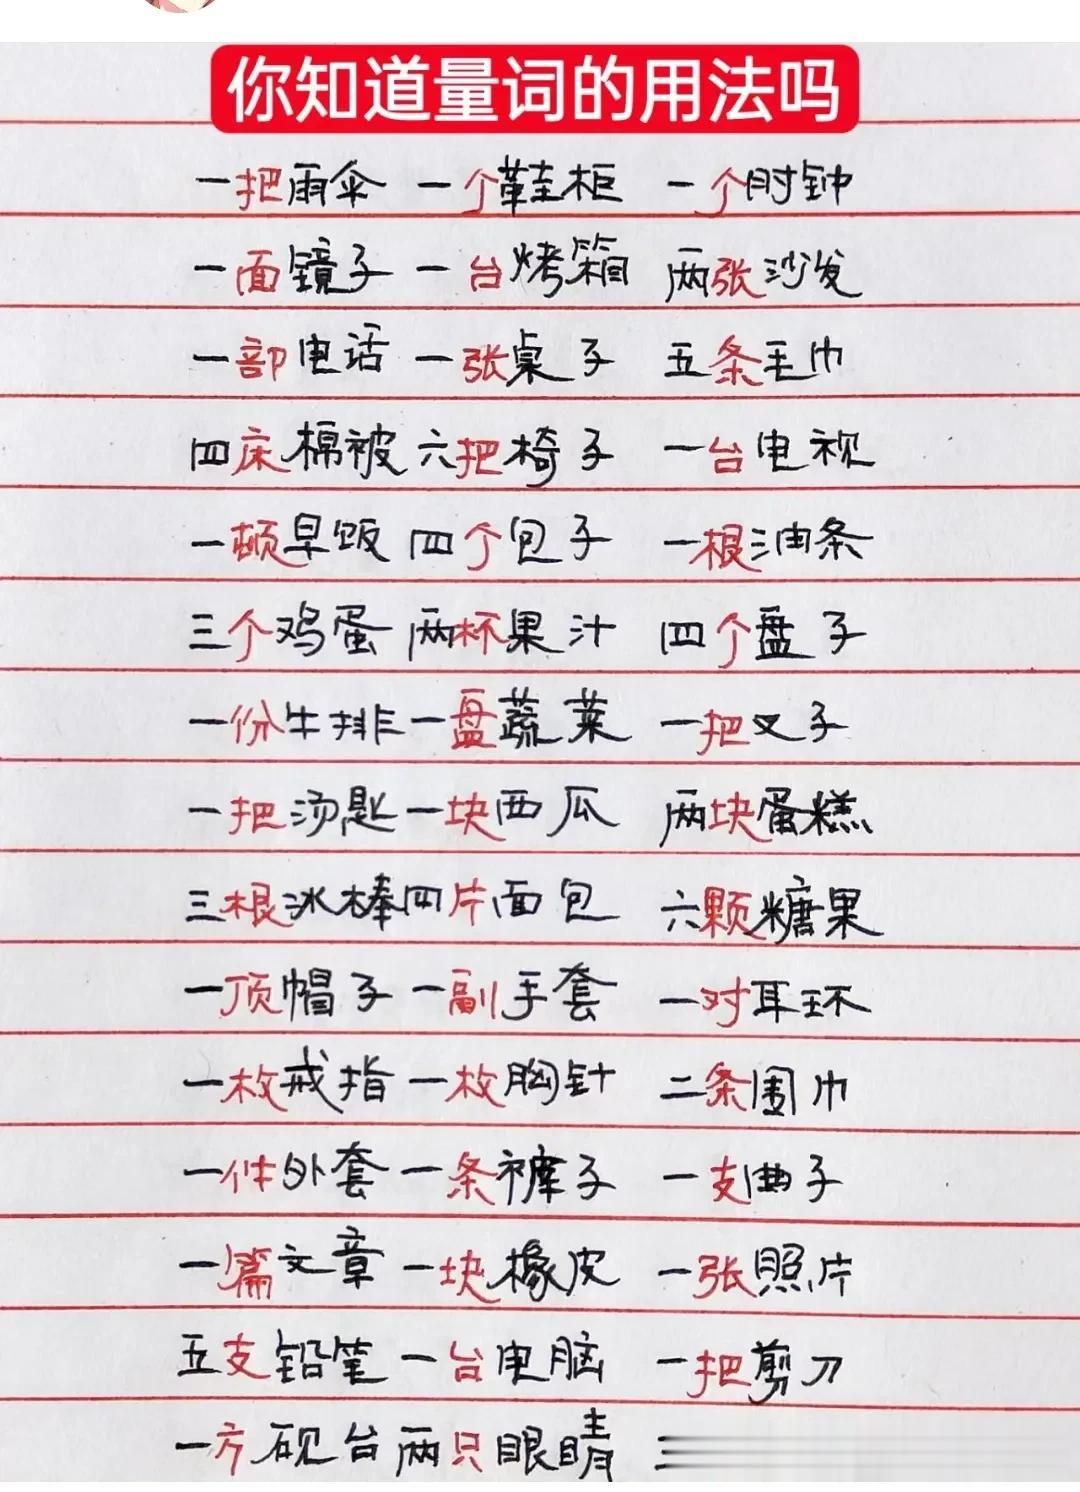 你知道量词的用法吗
一把雨伞 一个鞋柜 一个时钟
一面镜子 一台烤箱 两张沙发
一部电话 一张桌子 五条毛巾
四床棉被 六把椅子 一台电视
一顿早饭 四个包子 一根油条
三个鸡蛋 两杯果汁 四个盘子
一份牛排 一盘蔬菜 一把叉子
一把汤匙 一块西瓜 两块蛋糕
三根冰棒 四片面包 六颗糖果
一顶帽子 一副手套 一对耳环
一枚戒指 一枚胸针 二条围巾
一件外套 一条裤子 一支曲子
一篇文章 一块橡皮 一张照片
五支铅笔 一台电脑 一把剪刀
一方砚台 两只眼睛